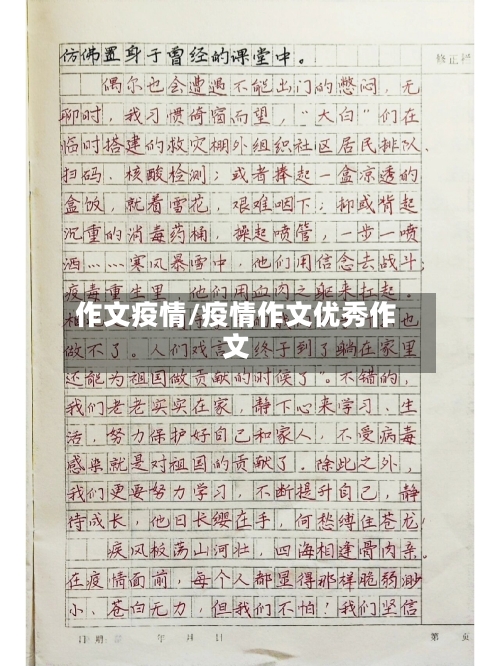 仿佛置身于曾经的课堂中。
修正栏
偶尔也会遭遇不能出门的憋闷，无
聊时，我习惯倚窗而望，"大白"们在
临时搭建的救灾棚外组织社区居民排队、
扫码、核酸检测；或者捧起一盒凉透的
盒饭，就着雪花，艰难咽下；抑或背起
沉重的消毒药桶，操起喷管，一步一喷
洒……寒风暴雪中，他们用信念去战斗；
疫毒重生里，他们用血肉之躯来扛起。
作文疫情/疫情作文优秀作
文
也
做不了。人们戏言"终于到了躺在家里
还能为祖国做贡献的时候了"。不错的，
我们老老实实在家，静下心来学习、生
活，努力保护好自己和家人，不受病毒
感染就是对祖国的贡献了。除此之外，
我们更要努力学习，不断提升自己，静
待成长，他日长缨在手，何愁缚住苍龙！
疾风板荡山河壮，四海相逢骨肉亲。
在疫情面前，每个人都显得那样脆弱渺
小、苍白无力，但我们不怕！我们坚信
日期 年 月 日
第 页